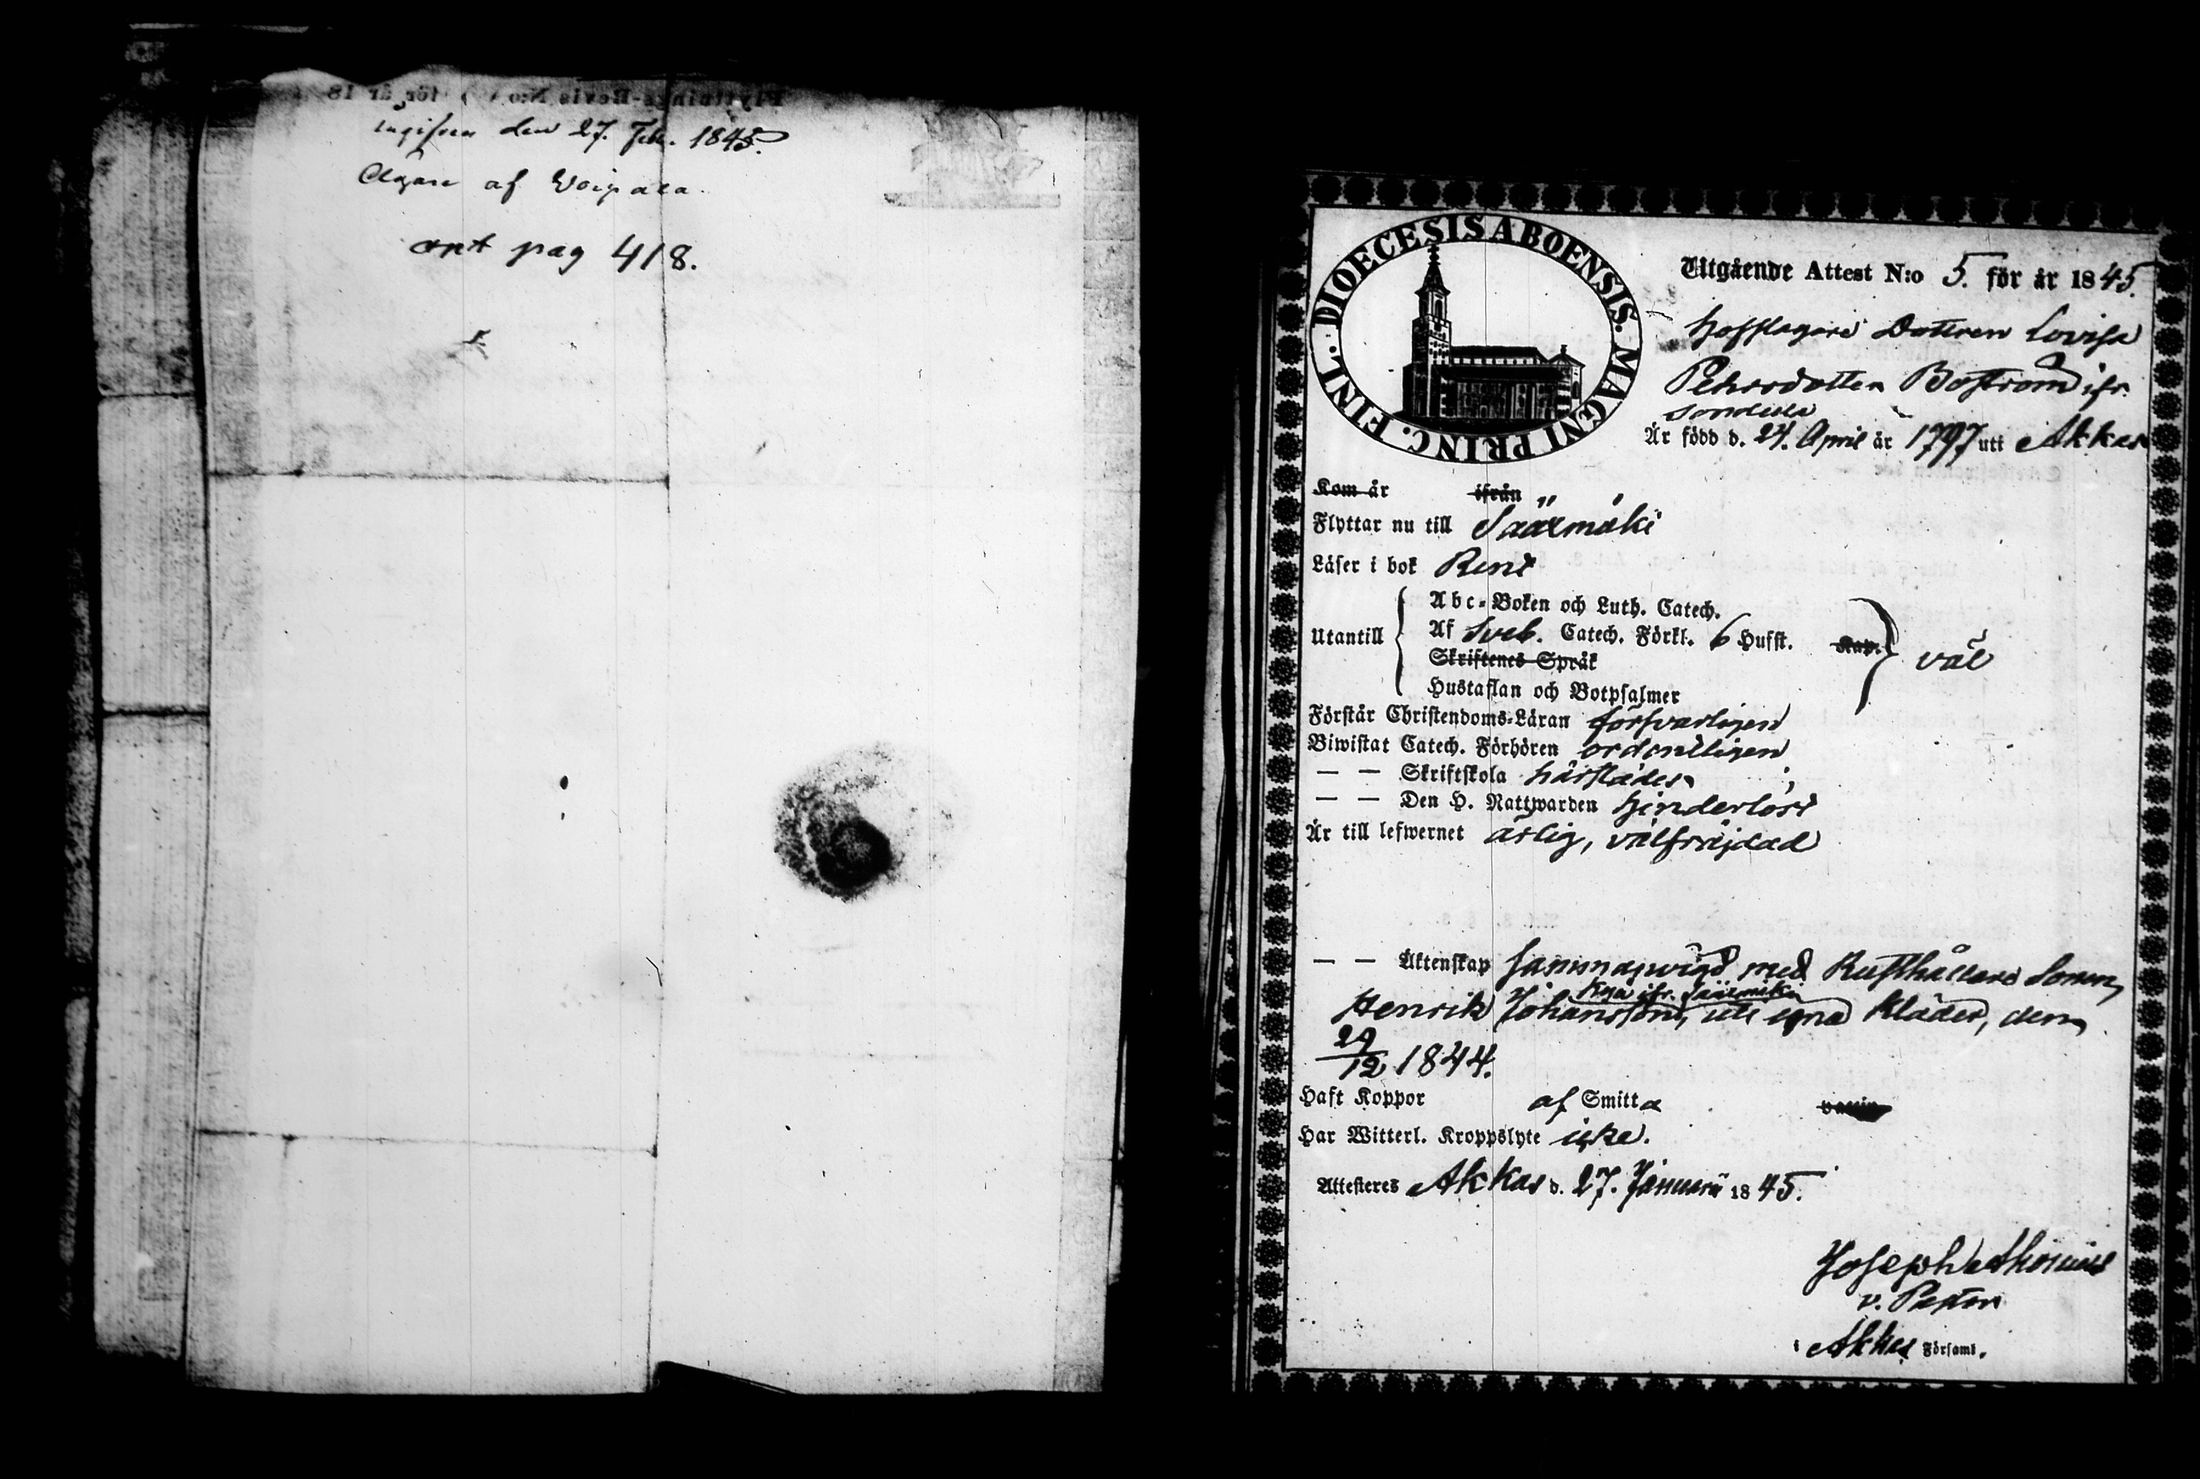 Flyttnings-Bevis N:o för år 18
ingifven den 27. Feb. 1845.
Ägare af Woipala
ant pag 418.
DIOECESIS ABOENSIS. MAGNI PRINC. FINL.
Utgående Attest N:o 5. för år 1845.
Dottren Lovisa
Pehrsdotter Boström ifr.
Är född d. 24. April år 1797 uti Akkas
Kom år ifrån
Flyttar nu till Sääxmäki
Läser i bok Rent
Abc-Boken och Luth. Catech.
Utantill Af Sveb. Catech. Förkl. 6 Hufst. Kap. väl
Skriftenes Språk
Hustaflan och Botpsalmer
Förstår Christendoms-Läran försvarligen
Biwistat Catech. Förhören ordentligen
— — Skriftskola härstädes
— — Den H. Nattwarden hinderlöst
Är till lefwernet ärlig, välfräjdad
— — Äktenskap sammanvigd med Rusthållare Sonen
ifr. Sääxmäki
Henrik Johansson, uti egna kläder, den
29/12 1844.
Haft Koppor af Smitta
Har Witterl. Kroppslyte icke.
Attesteres Akkas d. 27. Januarii 1845.
Joseph
v. Pastor
i Akkas Församl.